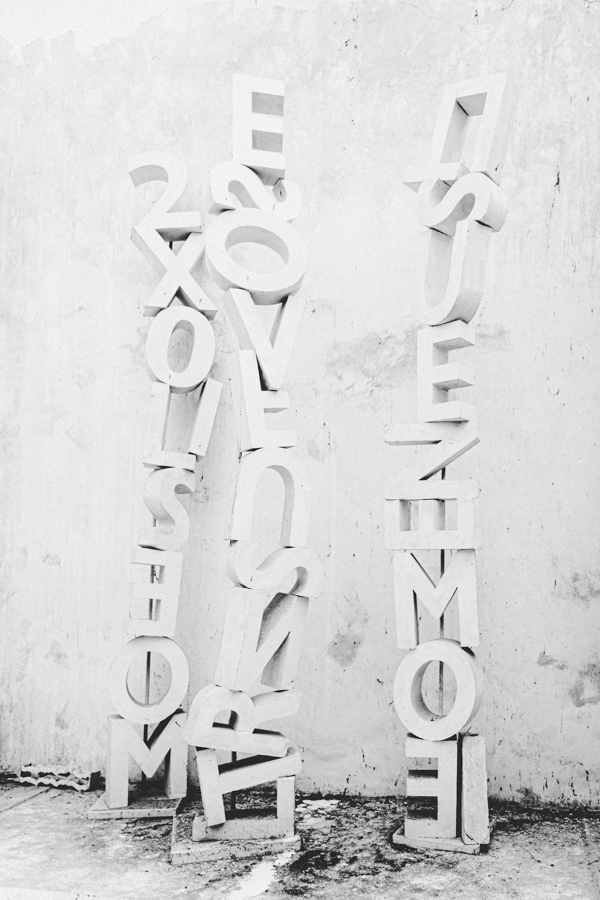 2
X
O
L
I
S
E
O
M
E
S
O
V
E
U
S
N
R
T
E
U
S
U
E
Z
E
M
O
E
I